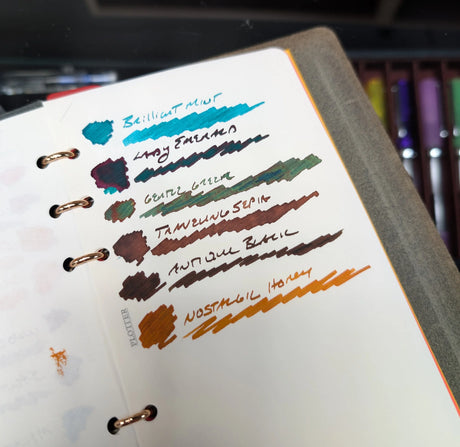 Brilliant Mint
Lady Emerald
Gentle Green
Traveling Sepia
Antique Black
Nostalgic Honey
PLOTTER